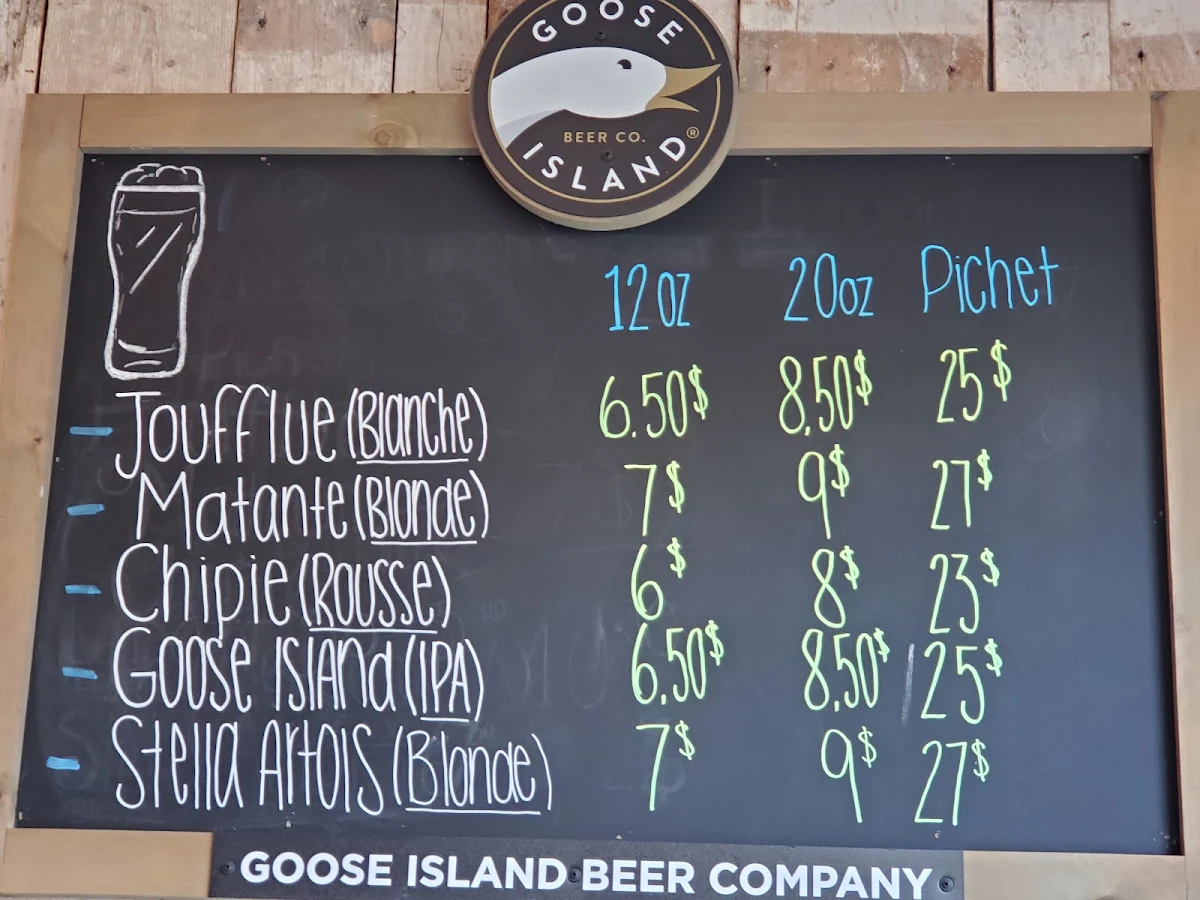 GOOSE
BEER CO.
ISLAND®
12oz 20oz Pichet
- Joufflue (Blanche) 6.50$ 8,50$ 25$
- Matante (Blonde) 7$ 9$ 27$
- Chipie (Rousse) 6$ 8$ 23$
- Goose Island (IPA) 6,50$ 8,50$ 25$
- Stella Artois (Blonde) 7$ 9$ 27$
GOOSE ISLAND BEER COMPANY